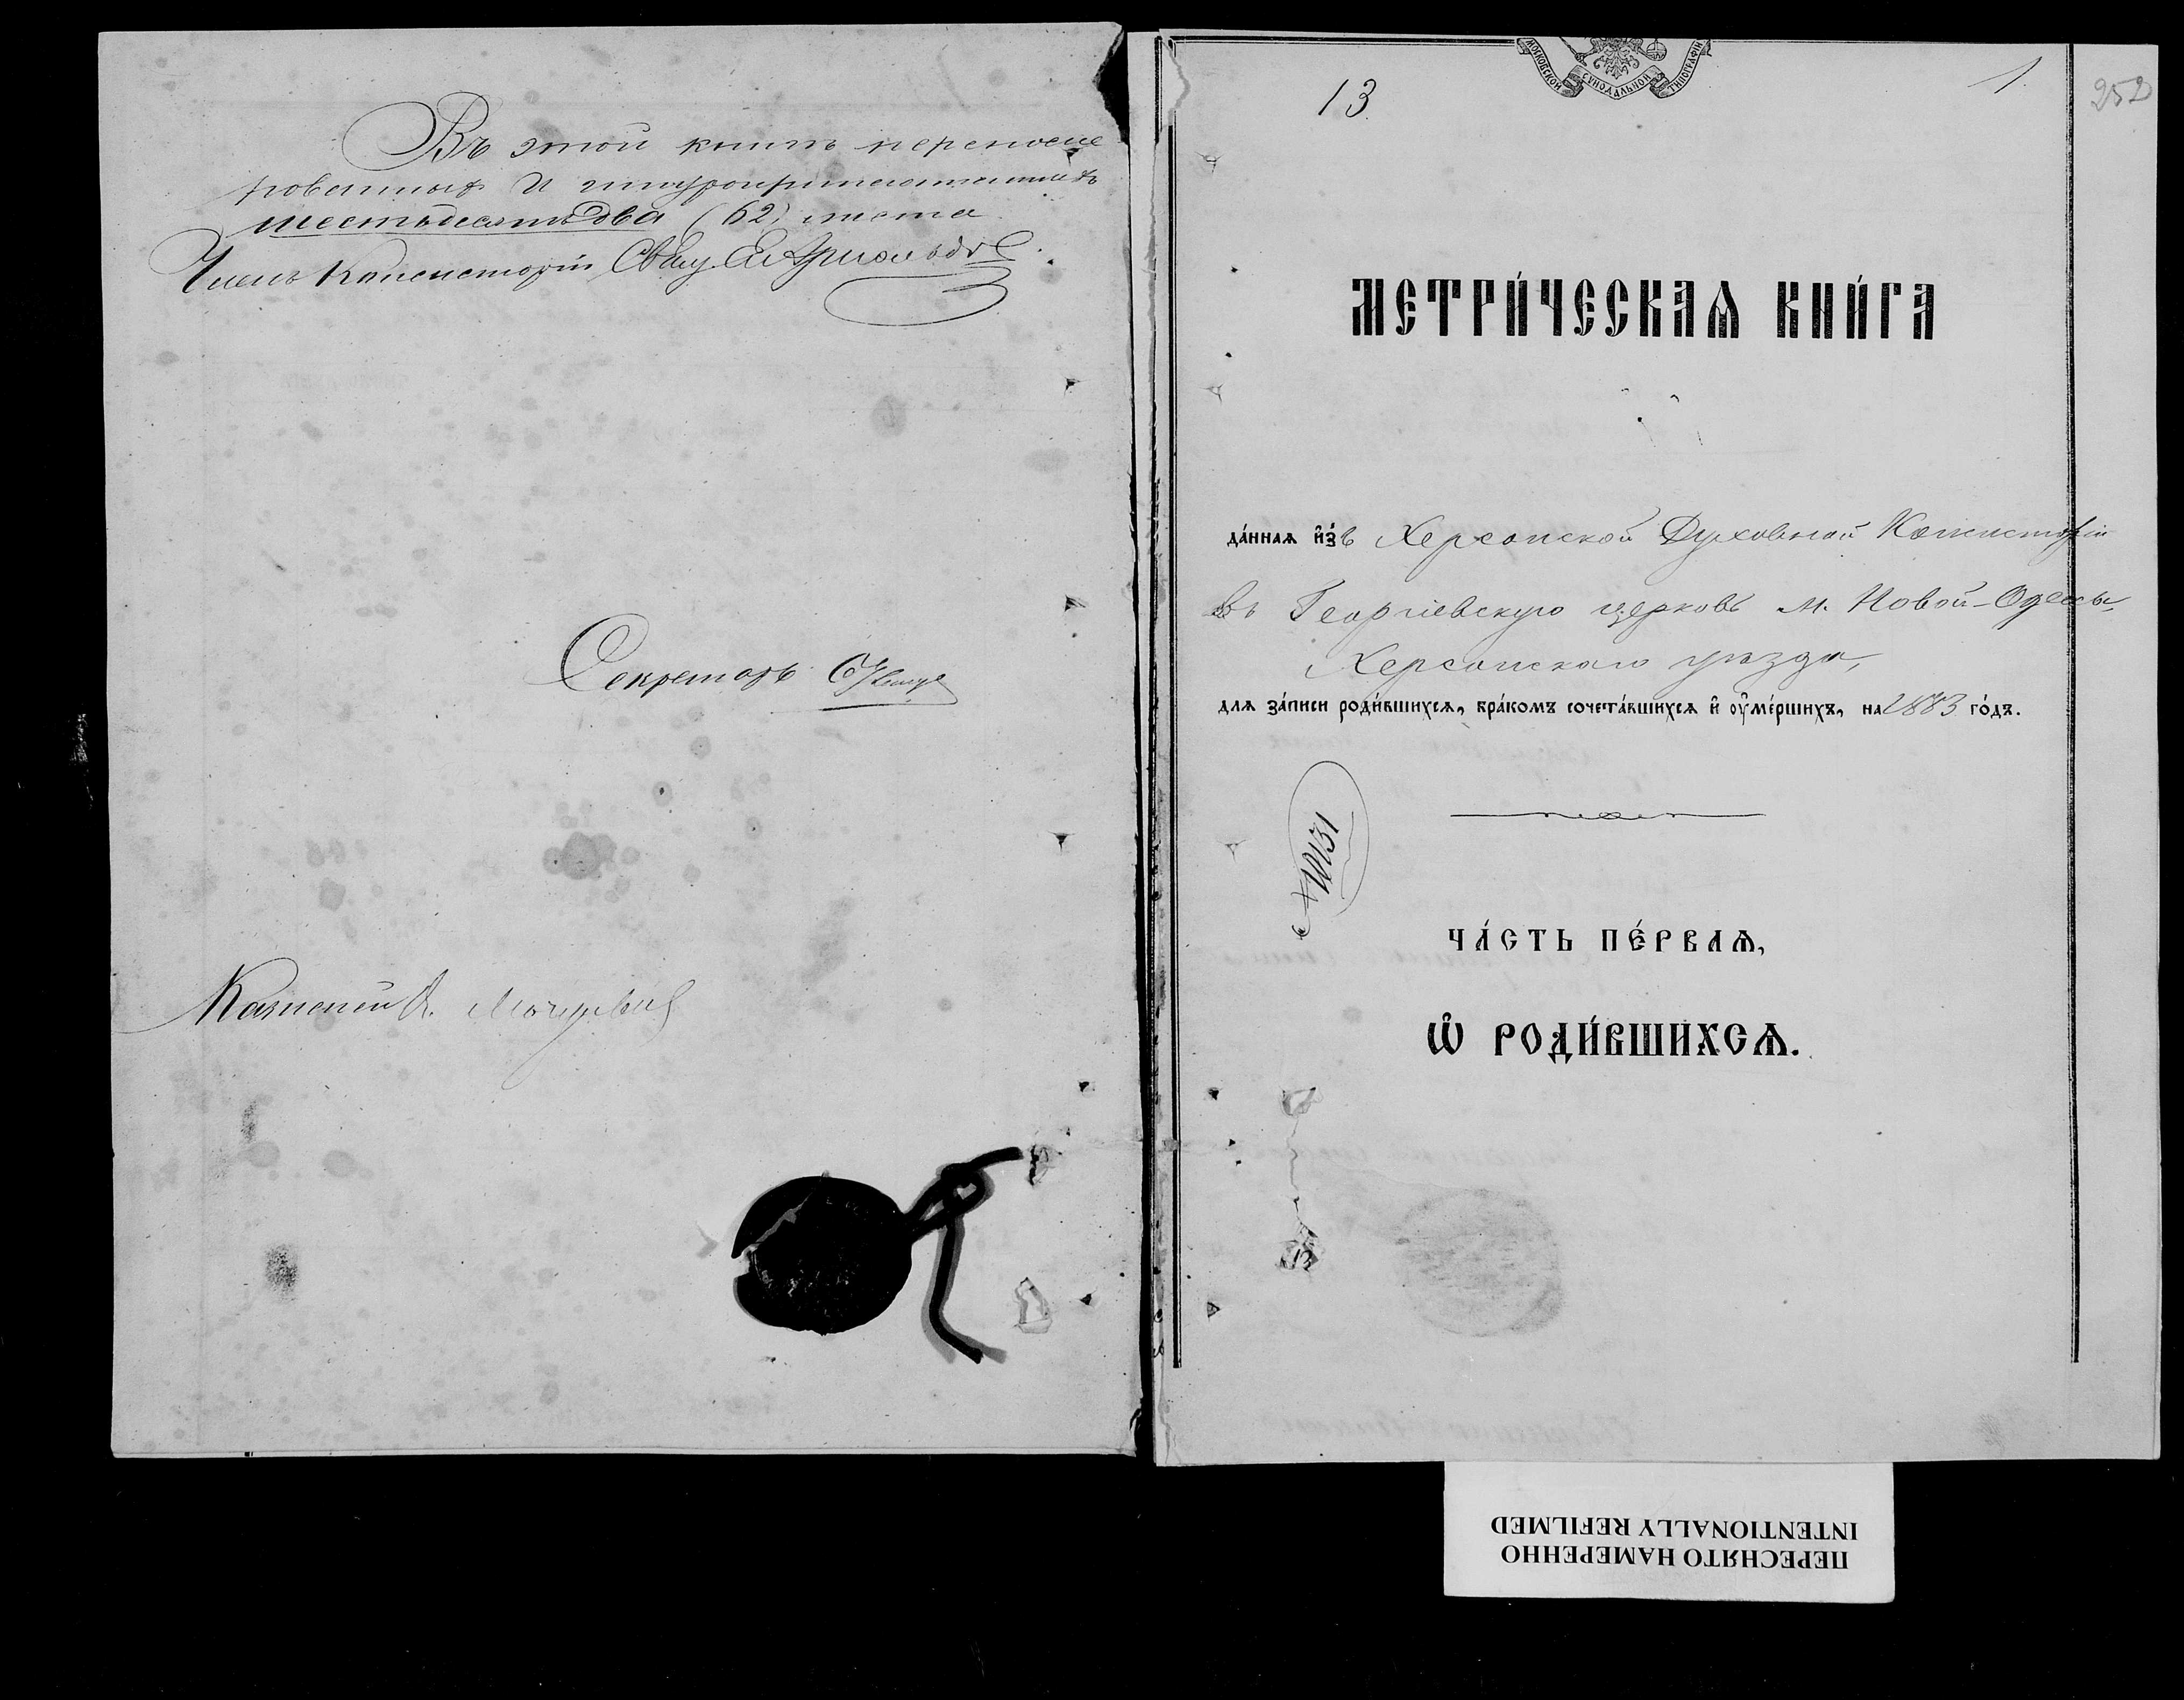 Въ этой книгѣ перенуме
рованныхъ и шнуроприпечатанныхъ
шестьдесятъ два (62) листа
Членъ Консисторіи Свящ.
Секретарь
Казначей
МОСКОВСКОЙ СУНОДАЛЬНОЙ ТИПОГРАФІИ
13.
1.
252
МЕТРИ́ЧЕСКАѦ КНИ́ГА
да́ннаѧ и҆́зъ Херсонской Духовной Консисторіи
въ Георгіевскую церковь м. Новой-Одессы,
Херсонскаго уѣзда,
для за́писи роди́вшихсѧ, бра́комъ сочета́вшихсѧ и҆ ᲂу҆ме́ршихъ, на 1883 го́дъ.
ЧА́СТЬ ПЕ́РВАѦ,
Ѡ҆ РОДИ́ВШИХСѦ.
ПЕРЕСНЯТО НАМЕРЕННО
INTENTIONALLY REFILMED